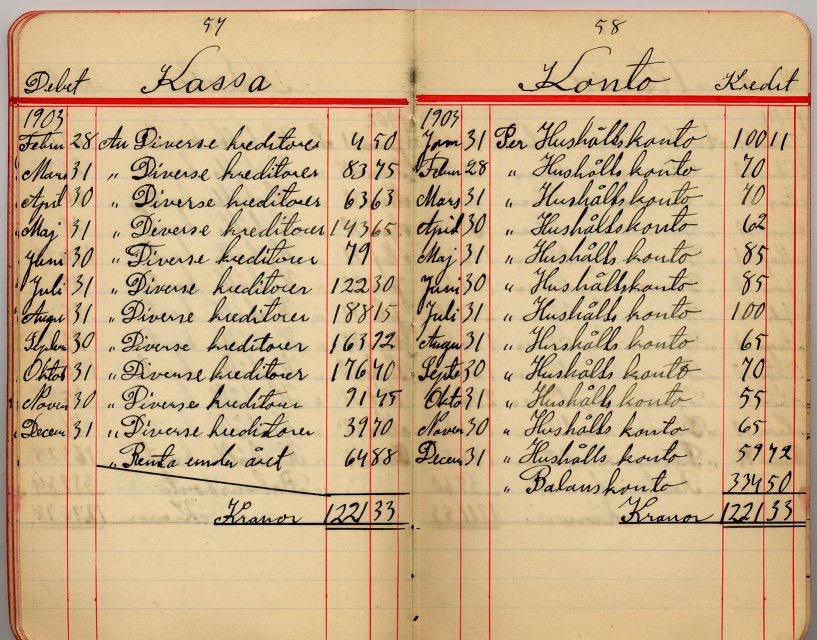 57
Debet Kassa
1903
Febru 28 An Diverse kreditorer 4 50
Mars 31 „ Diverse kreditorer 83 75
April 30 „ Diverse kreditorer 63 63
Maj 31 „ Diverse kreditorer 143 65
Juni 30 „ Diverse kreditorer 79
Juli 31 „ Diverse kreditorer 122 30
Augu 31 „ Diverse kreditorer 188 15
Septem 30 „ Diverse kreditorer 163 92
Oktob 31 „ Diverse kreditorer 176 40
Novem 30 „ Diverse kreditorer 91 45
Decem 31 „ Diverse kreditorer 39 70
„ Renta under året 64 88
Kronor 1221 33
58
Konto Kredit
1903
Jan 31 Per Hushålls konto 100 11
Febru 28 „ Hushålls konto 70
Mars 31 „ Hushålls konto 70
April 30 „ Hushålls konto 62
Maj 31 „ Hushålls konto 85
Juni 30 „ Hushålls konto 85
Juli 31 „ Hushålls konto 100
Augu 31 „ Hushålls konto 65
Septe 30 „ Hushålls konto 70
Okto 31 „ Hushålls konto 55
Novem 30 „ Hushålls konto 65
Decem 31 „ Hushålls konto 59 72
„ Balanskonto 334 50
Kronor 1221 33